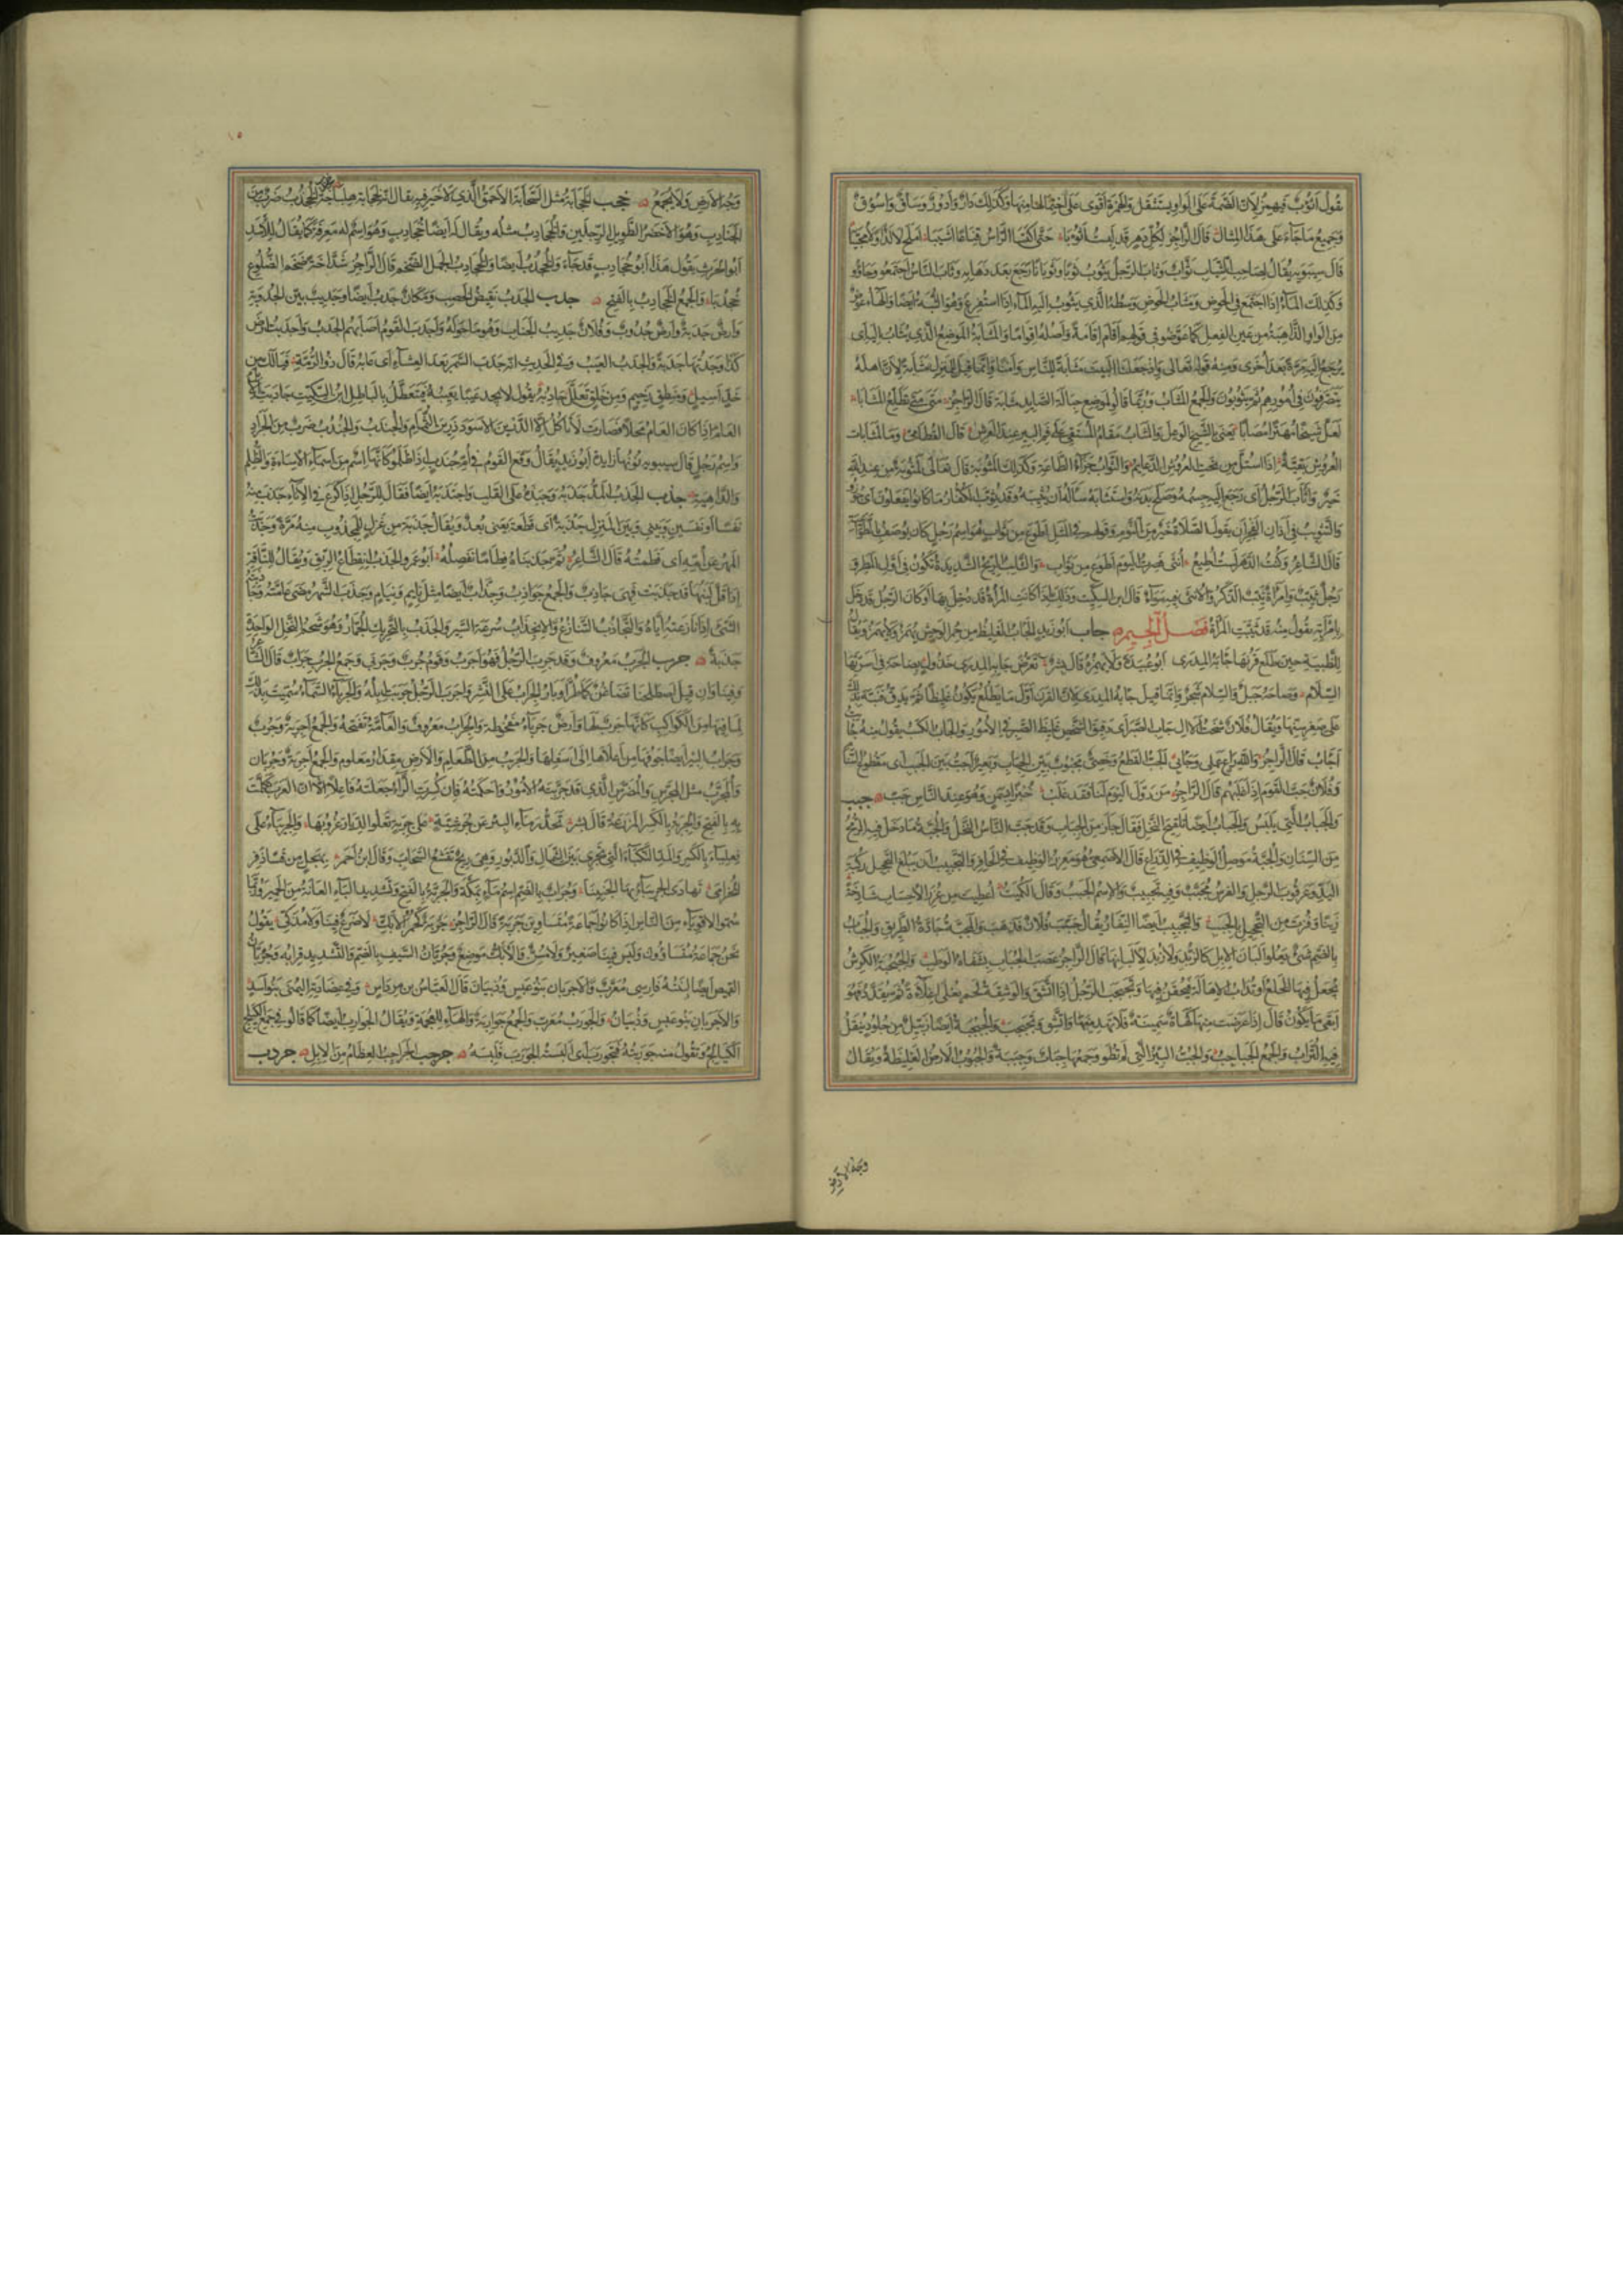 يقول أثوب فيهمز لأن الضمة على الواو يستثقل والهمزة أقوى على احتمالها منها وكذلك دار وأدور وساق وأسوق
وجميع ما جاء على هذا المثال قال الراجز لكل دهر قد لبست أثوبا حتى اكتسى الرأس قناعا أشيبا أملح لا لذا ولا محببا
قال سيبويه يقال لصاحب الثياب ثواب وثاب الرجل يثوب ثوبا وثوبانا رجع بعد ذهابه وثاب الناس اجتمعوا وجاؤا
وكذلك الماء إذا اجتمع في الحوض ومثاب الحوض وسطه الذي يثوب إليه الماء إذا استفرغ وهو الثبة أيضا والهاء عوض
من الواو الذاهبة من عين الفعل كما عوضوا في قولهم أقام إقامة وأصله إقواما والمثابة الموضع الذي يثاب إليه أي
يرجع إليه مرة بعد أخرى ومنه قوله تعالى وإذ جعلنا البيت مثابة للناس وأمنا وإنما قيل للمنزل مثابة لأن أهله
يتصرفون في أمورهم ثم يثوبون والجمع المثاب وربما قالوا لموضع حبالة الصايد مثابة قال الراجز متى متى تطلع المثابا
لعل شيخا مهترا مصابا يعني بالشيخ الوعل والمثاب مقام المستقي على فم البير عند العرش قال القطامي وما لمثابات
العروش بقية إذا استل من تحت العروش الدعايم والثواب جزاء الطاعة وكذلك المثوبة قال تعالى لمثوبة من عند الله
خير وأثاب الرجل أي رجع إليه جسمه وصلح بدنه واستثابه سأله أن يثيبه وقد ثوب الكفار ما كانوا يفعلون أي جوزوا
والتثويب في أذان الفجر أن يقول الصلاة خير من النوم وقولهم في المثل أطوع من ثواب هو اسم رجل كان يوصف بالطواعية
قال الشاعر وكنت الدهر لست أطيع أنثى فصرت اليوم أطوع من ثواب والثايب الريح الشديدة تكون في أول المطر
رجل ثيب وامرأة ثيب الذكر والأنثى فيه سواء قال ابن السكيت وذلك إذا كانت المرأة قد دخل بها أو كان الرجل قد دخل
بامرأته يقول منه قد ثيبت المرأة فصل الجيم جأب أبو زيد الجأب الغليظ من حمر الوحش يهمز ولا يهمز ويقال
للظبية حين طلع قرنها جأبة المدرى أبو عبيدة ولا يهمزه قال بشر تعرض جابة المدرى خذول بصاحة في أسرتها
السلام وصاحة جبل والسلام شجر وإنما قيل جابة المدرى لأن القرن أول ما يطلع يكون غليظا ثم يدق فنبه بذلك
على صغر سنها ويقال فلان شخت الآل جاب الصبر أي دقيق الشخص غليظ الصبر في الأمور والجاب الكسب يقول منه جأبت
أجأب قال الراجز والله راع عملي وجأبي جبب الجب القطع وخصي مجبوب بين الجباب وبعير أجب بين الجبب أي مقطوع السنام
وفلان جب القوم إذا غلبهم قال الراجز من رول اليوم لنا فقد غلب خبزا بسمن وهو عند الناس جب
والجباب التي يلبس والجباب أيضا تلقيح النخل يقال جاء زمن الجباب وقد جب الناس النخل والجبة ما دخل فيه الرمح
من السنان والجبة موصل الوظيف في الذراع قال الأصمعي هو مغرز الوظيف في الحافر والتجبيب أن يبلغ التحجيل ركبة
اليد وعرقوب الرجل والفرس مجبب وفيه تجبيب والاسم الجبب وقال الكميت أعطيت من غرر الأحساب شادخة
زينا وفزت من التحجيل بالجبب والتجبيب أيضا النفار يقال جبب فلان فذهب والمجبة جادة الطريق والجباب
بالضم شيء يعلو ألبان الإبل كالزبد ولا زبد لألبانها قال الراجز عصب الجباب بشفاه الوطب والجبجبة الكرش
يجعل فيها الخلع أو تذاب الإهالة فتحقن فيها وتجبجب الرجل إذا اتشق والوشيقة لحم يغلى إغلاءة ثم يقدد فهو
أبقى ما يكون قال إذا عرضت منها كهاة سمينة فلا تهد منها واتشق وتجبجب والجبجبة أيضا زبيل من جلود ينقل
فيه التراب والجمع الجباجب والجب البئر التي لم تطو وجمعها جباب وجببة والجبوب الأرض الغليظة ويقال
وجه الأرض
وجه الأرض ولا يجمع جخب الجخابة مثل السحابة الأحمق الذي لا خير فيه يقال إنه لجخابة هلباجة جخدب الجخدب ضرب من
الجنادب وهو الأخضر الطويل الرجلين والجخادب مثله ويقال له أيضا أبو جخادب وهو اسم له معرفة كما يقال للأسد
أبو الحرث يقول هذا أبو جخادب قد جاء والجخدب أيضا والجخادب الجمل الضخم قال الراجز شداخة ضخم الضلوع
جخدبا والجمع الجخادب بالفتح جدب الجدب نقيض الخصب ومكان جدب أيضا وجديب بين الجدوبة
وأرض جدبة وأرض جدوب وفلان جديب الجناب وهو ما حوله وأجدب القوم أصابهم الجدب وأجدبت أرض
كذا وجدتها جدبة والجدب العيب وفي الحديث أنه جدب السمر بعد العشاء أي عابه قال ذو الرمة فيا لك من
خد أسيل ومنطق رخيم ومن خلق تعلل جادبه يقول لا يجد عيبا يعيبه فيتعلل بالباطل ابن السكيت جادبت الإبل
العام إذا كان العام محلا فصارت لا تأكل إلا الدرين الأسود درين الثمام والجندب والجندب ضرب من الجراد
واسم رجل قال سيبويه نونها زايدة أبو زيد يقال وقع القوم في أم جندب إذا ظلموا كأنها اسم من أسماء الإساءة والظلم
والداهية جذب الجذب المد جذبه وجبذه على القلب واجتذبه أيضا يقال للرجل إذا كرع في الإناء جذب منه
نفسا أو نفسين وبيني وبين المنزل جذبة أي قطعة يعني بعد ويقال جذبة من غزل للمجذوب منه مرة وجذبت
المهر عن أمه أي فطمته قال الشاعر ثم جذبناه فطاما نفصله أبو عمرو الجذب انقطاع الريق ويقال للناقة
إذا قل لبنها قد جذبت فهي جاذب والجمع جواذب وجذاب أيضا مثل نايم ونيام وجذب الشهر مضى عامته وجاذبته
الشيء إذا نازعته إياه والتجاذب التنازع والانجذاب سرعة السير والجذب بالتحريك الجمار وهو شحم النخل الواحدة
جذبة جرب الجرب معروف وقد جرب الرجل فهو أجرب وقوم جرب وجربى وجمع الجرب جراب قال الشاعر
وفينا وإن قيل اصطلحنا تضاغن كما طر أوبار الجراب على النشر وأجرب الرجل جربت إبله والجرباء السماء سميت بذلك
لما فيها من الكواكب كأنها جرب لها وأرض جرباء مقحوطة والجراب معروف والعامة تفتحه والجمع أجربة وجرب
وجراب البئر أيضا جوفها من أعلاها إلى أسفلها والجريب من الطعام والأرض مقدار معلوم والجمع أجربة وجربان
والمجرب مثل المجرس والمضرس الذي قد جربته الأمور وأحكمته فإن كسرت الراء جعلته فاعلا إلا أن العرب تكلمت
به بالفتح والجربة بالكسر المزرعة قال بشر تحدر ماء البئر عن جرشية على جربة تعلو الديار غروبها والجربياء على
فعلياء بالكسر والمد النكباء التي تجري بين الشمال والدبور وهي ريح تقشع السحاب وقال ابن أحمر بهجل من قسا ذفر
الخزامى تهادى الجربياء بها الحنينا وجراب بالضم اسم ماء بمكة والجربة بالفتح وتشديد الباء العانة من الحمير وربما
سموا الأقوياء من الناس إذا كانوا جماعة متساوين جربة قال الراجز جربة كحمر الأبك لا ضرع فينا ولا مذكي يقول
نحن جماعة متساوون وليس فينا صغير ولا مسن والأبك موضع وجربان السيف بالضم والتشديد قرابه وجربان
القميص أيضا لبنته فارسي معرب والأجربان بنو عبس وذبيان قال العباس بن مرداس وفي عضادته اليمنى بنو أسد
والأجربان بنو عبس وذبيان والجورب معرب والجمع جواربة والهاء للعجمة ويقال الجوارب أيضا كما قالوا في جمع الكيلج
الكيالج وتقول منه جوربته فتجورب أي ألبسته الجورب فلبسه جرجب الجراجب العظام من الإبل جردب